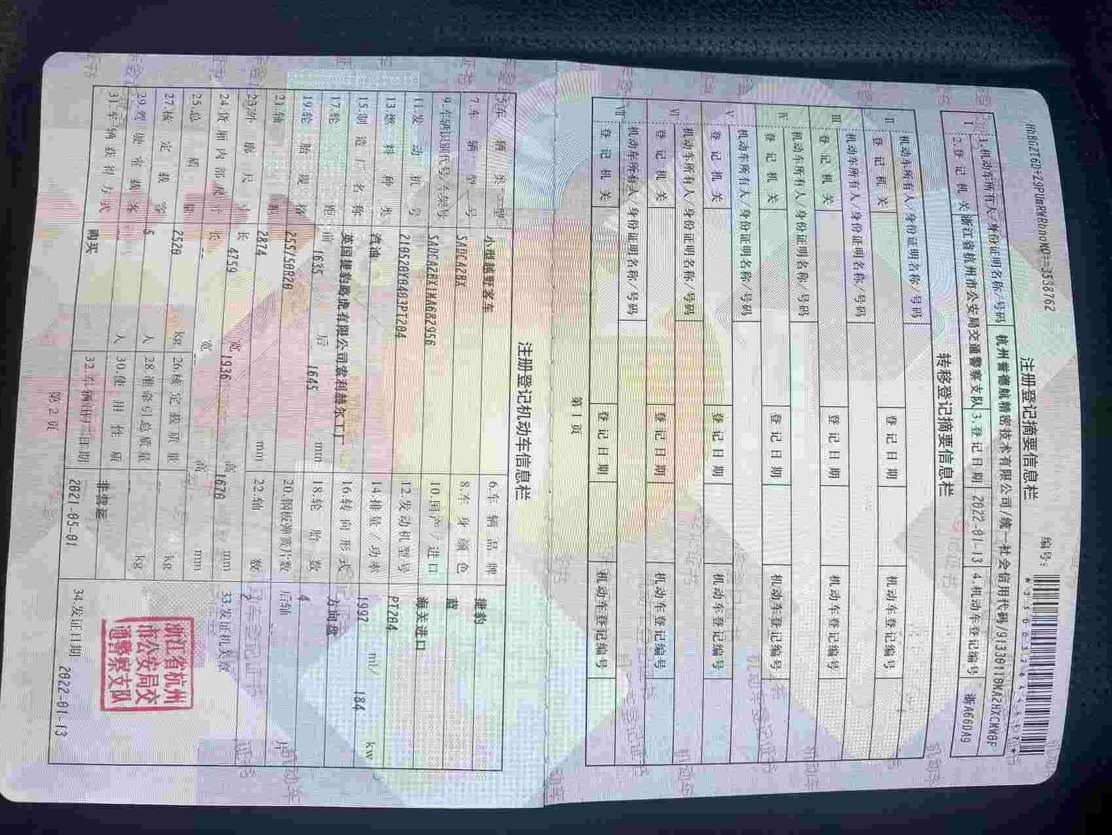 注册登记摘要信息栏
编号:
Ⅰ 1.机动车所有人/身份证明名称/号码 杭州誉德航精密技术有限公司/统一社会信用代码/
2.登记机关 浙江省杭州市公安局交通警察支队 3.登记日期 2022-01-13 4.机动车登记编号 浙A66DA9
转移登记摘要信息栏
Ⅱ 机动车所有人/身份证明名称/号码
登记机关 登记日期 机动车登记编号
Ⅲ 机动车所有人/身份证明名称/号码
登记机关 登记日期 机动车登记编号
Ⅳ 机动车所有人/身份证明名称/号码
登记机关 登记日期 机动车登记编号
Ⅴ 机动车所有人/身份证明名称/号码
登记机关 登记日期 机动车登记编号
Ⅵ 机动车所有人/身份证明名称/号码
登记机关 登记日期 机动车登记编号
Ⅶ 机动车所有人/身份证明名称/号码
登记机关 登记日期 机动车登记编号
第1页
注册登记机动车信息栏
5.车辆类型 小型越野客车 6.车辆品牌 捷豹
7.车辆型号 SADCA2BX 8.车身颜色 蓝
9.车辆识别代号/车架号 SADCA2BX1MA682956 10.国产/进口 海关进口
11.发动机号 210520Y0403PT204 12.发动机型号 PT204
13.燃料种类 汽油 14.排量/功率 1997 ml/ 184 kw
15.制造厂名称 英国捷豹路虎有限公司索利赫尔工厂 16.转向形式 方向盘
17.轮距 前 1635 后 1645 mm 18.轮胎数 4
19.轮胎规格 255/50R20 20.钢板弹簧片数 后轴 片
21.轴距 2874 mm 22.轴数 2
23.外廓尺寸 长 4759 宽 1936 高 1670 mm
24.货厢内部尺寸 长 -- 宽 高 mm
25.总质量 kg 26.核定载质量 kg
27.核定载客 5 人 28.准牵引总质量 kg
29.驾驶室载客 人 30.使用性质 非营运
31.车辆获得方式 购买 32.车辆出厂日期 2021-05-01
33.发证机关章
浙江省杭州
市公安局交
通警察支队
34.发证日期 2022-01-13
第2页